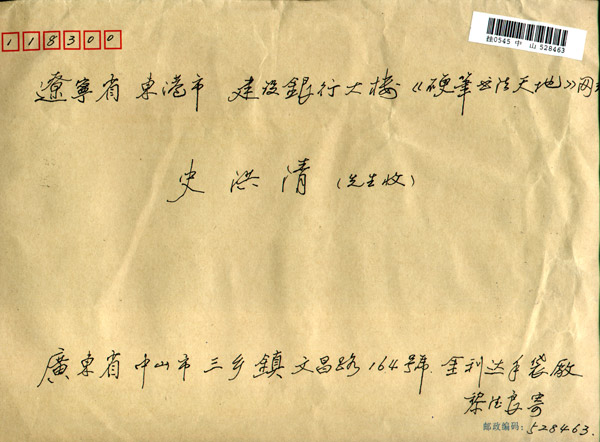 桂0545 中 山 528463
118300
遼寧省 東港市 建设銀行大楼《硬筆书法天地》网
史 洪 清 (先生收)
廣東省 中山市 三乡鎮 文昌路164號.金利达手袋廠
梁法良寄
邮政编码:528463.